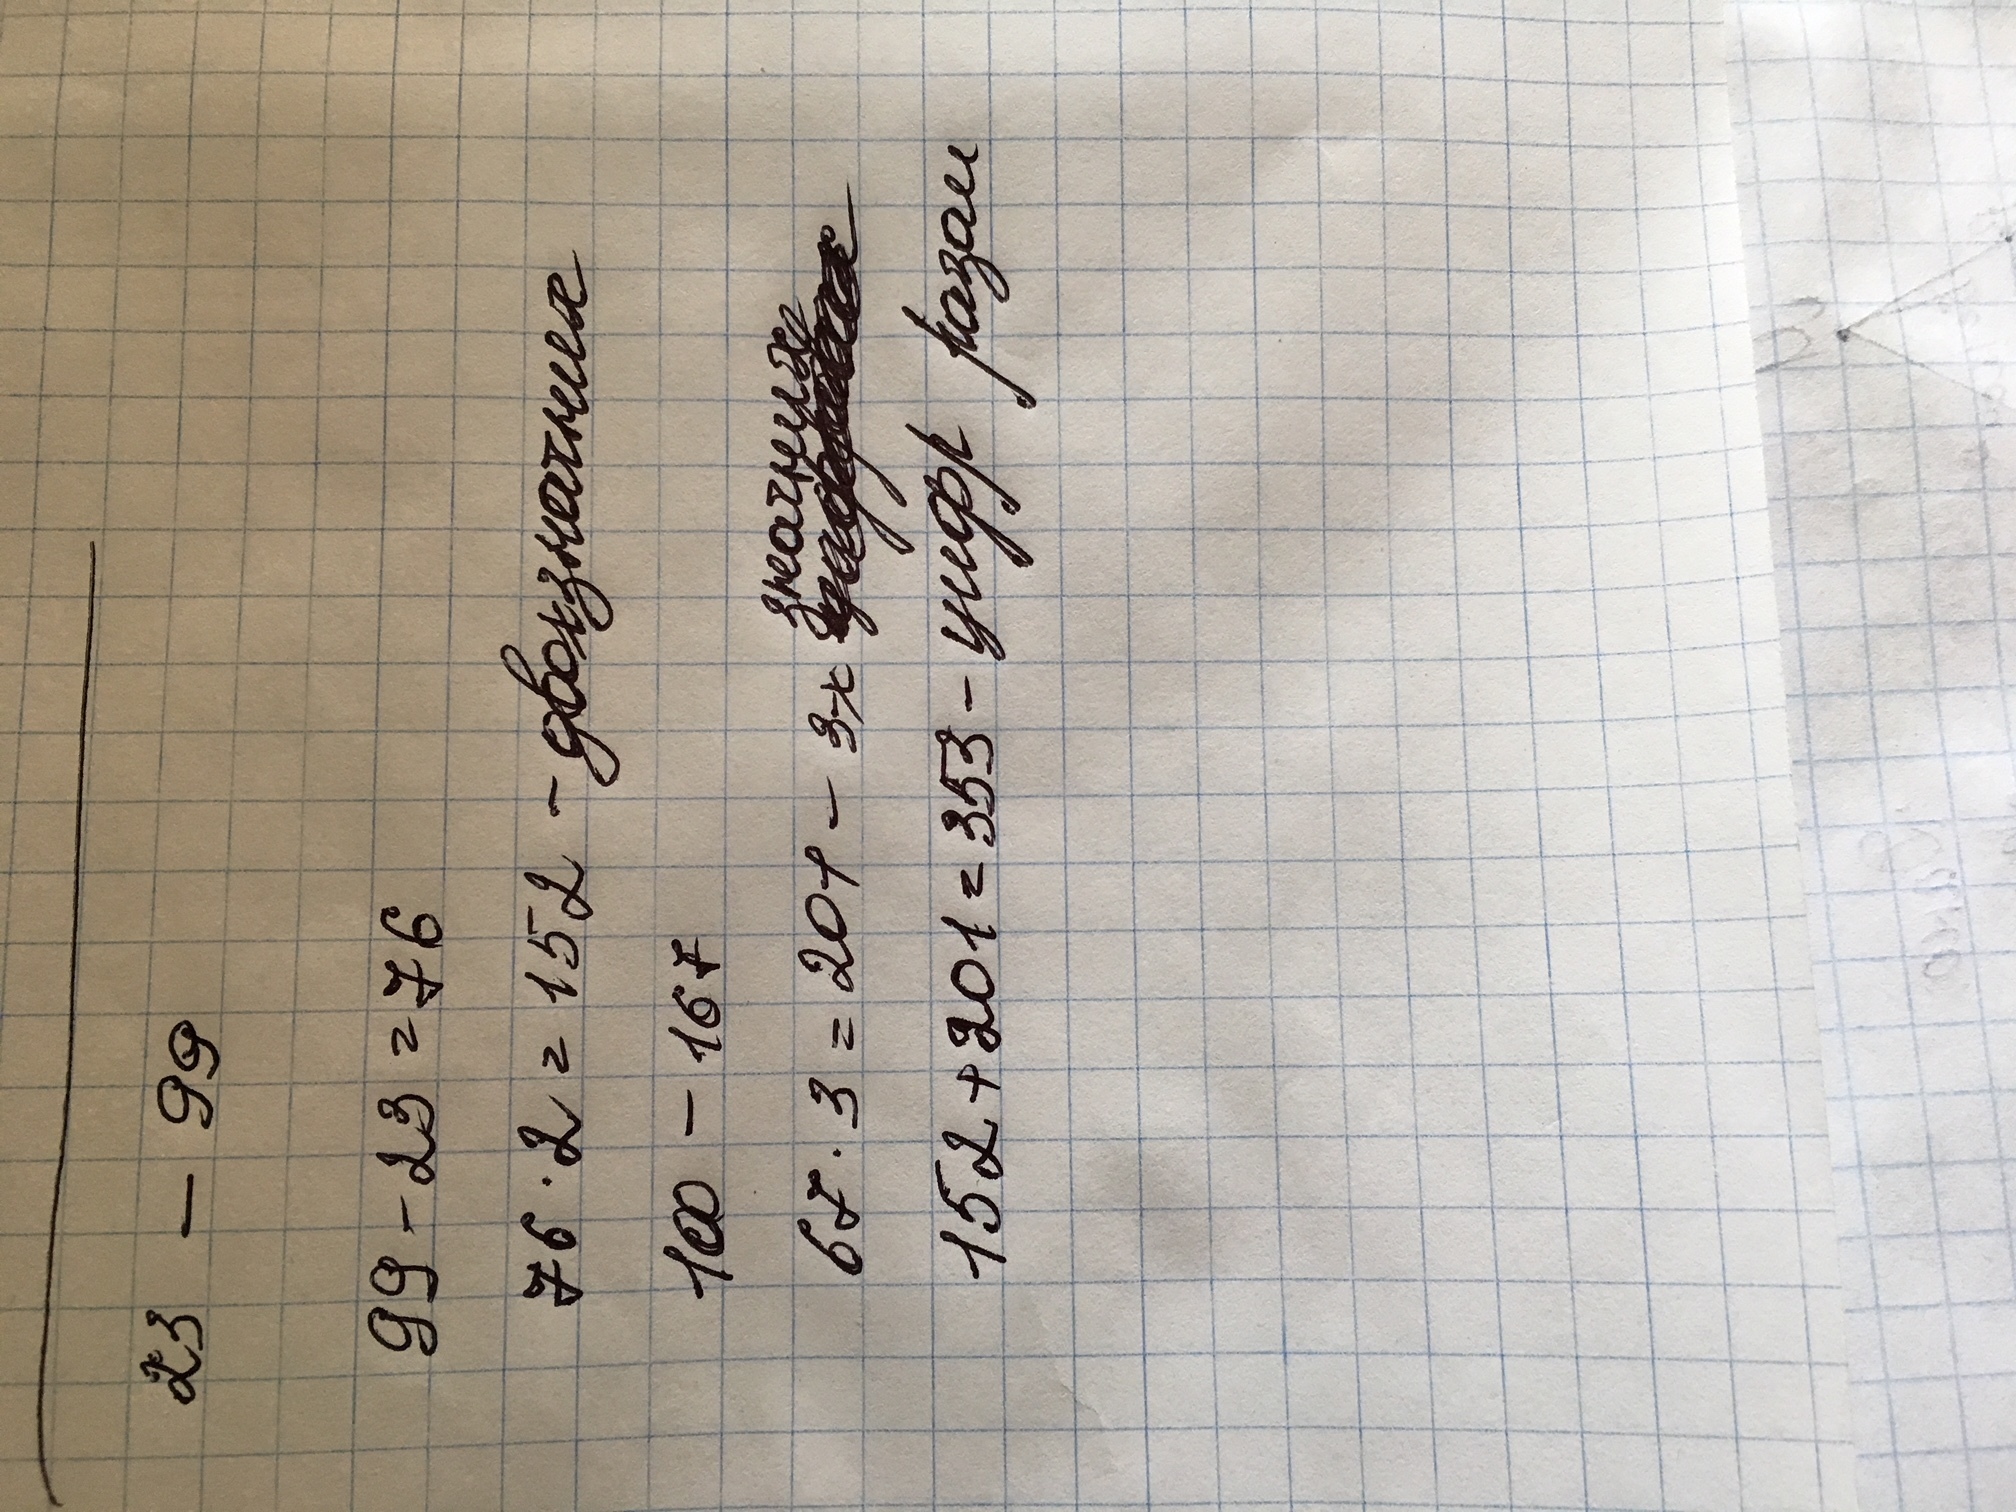 23 – 99
99 - 23 = 76
76 · 2 = 152 - двозначних
100 – 167
67 · 3 = 201 – 3-х значных
152 + 201 = 353 - цифр разом